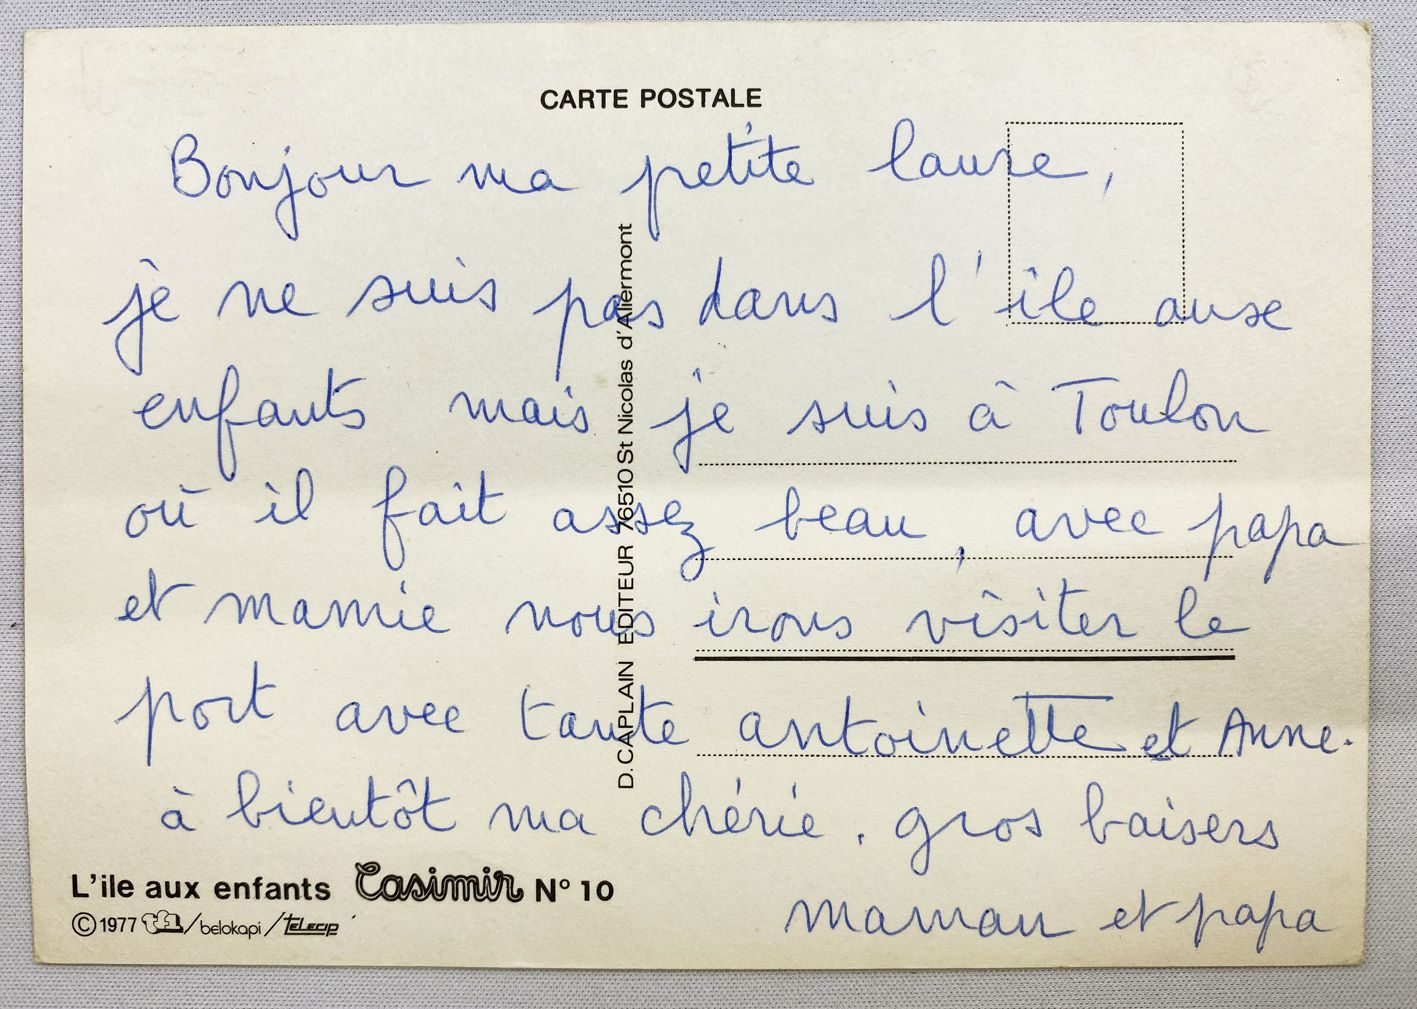 CARTE POSTALE
Bonjour ma petite laure,
je ne suis pas dans l'île aux
enfants mais je suis à Toulon
où il fait assez beau, avec papa
et mamie nous irons visiter le
port avec tante antoinette et Anne.
à bientôt ma chérie. gros baisers
maman et papa
D. CAPLAIN EDITEUR 76510 St Nicolas d'Aliermont
L'ile aux enfants Casimir N° 10
© 1977 TF1/belokapi/telecip